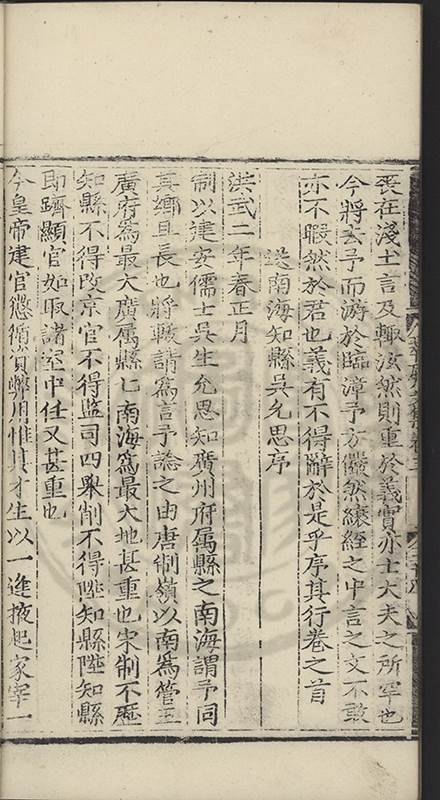 喪在淺土言及輙泫然則重於義實亦士大夫之所罕也
今將去予而游於臨漳予方儼然縗絰之中言之文不敢
亦不暇然於君也義有不得辭於是乎序其行卷之首
送南海知縣吳允思序
洪武二年春正月
制以建安儒士吳生允思知廣州府属縣之南海謂予同
其鄉且長也將戒請為言予諗之由唐制嶺以南為管五
廣府為最大廣属縣七南海為最大地甚重也宋制不歷
知縣不得改京官不得監司四舉削不得陞知縣陞知縣
即躋顯官如取諸室中任又甚重也
今皇帝建官懲循資弊用惟其才生以一進掖起家宰一